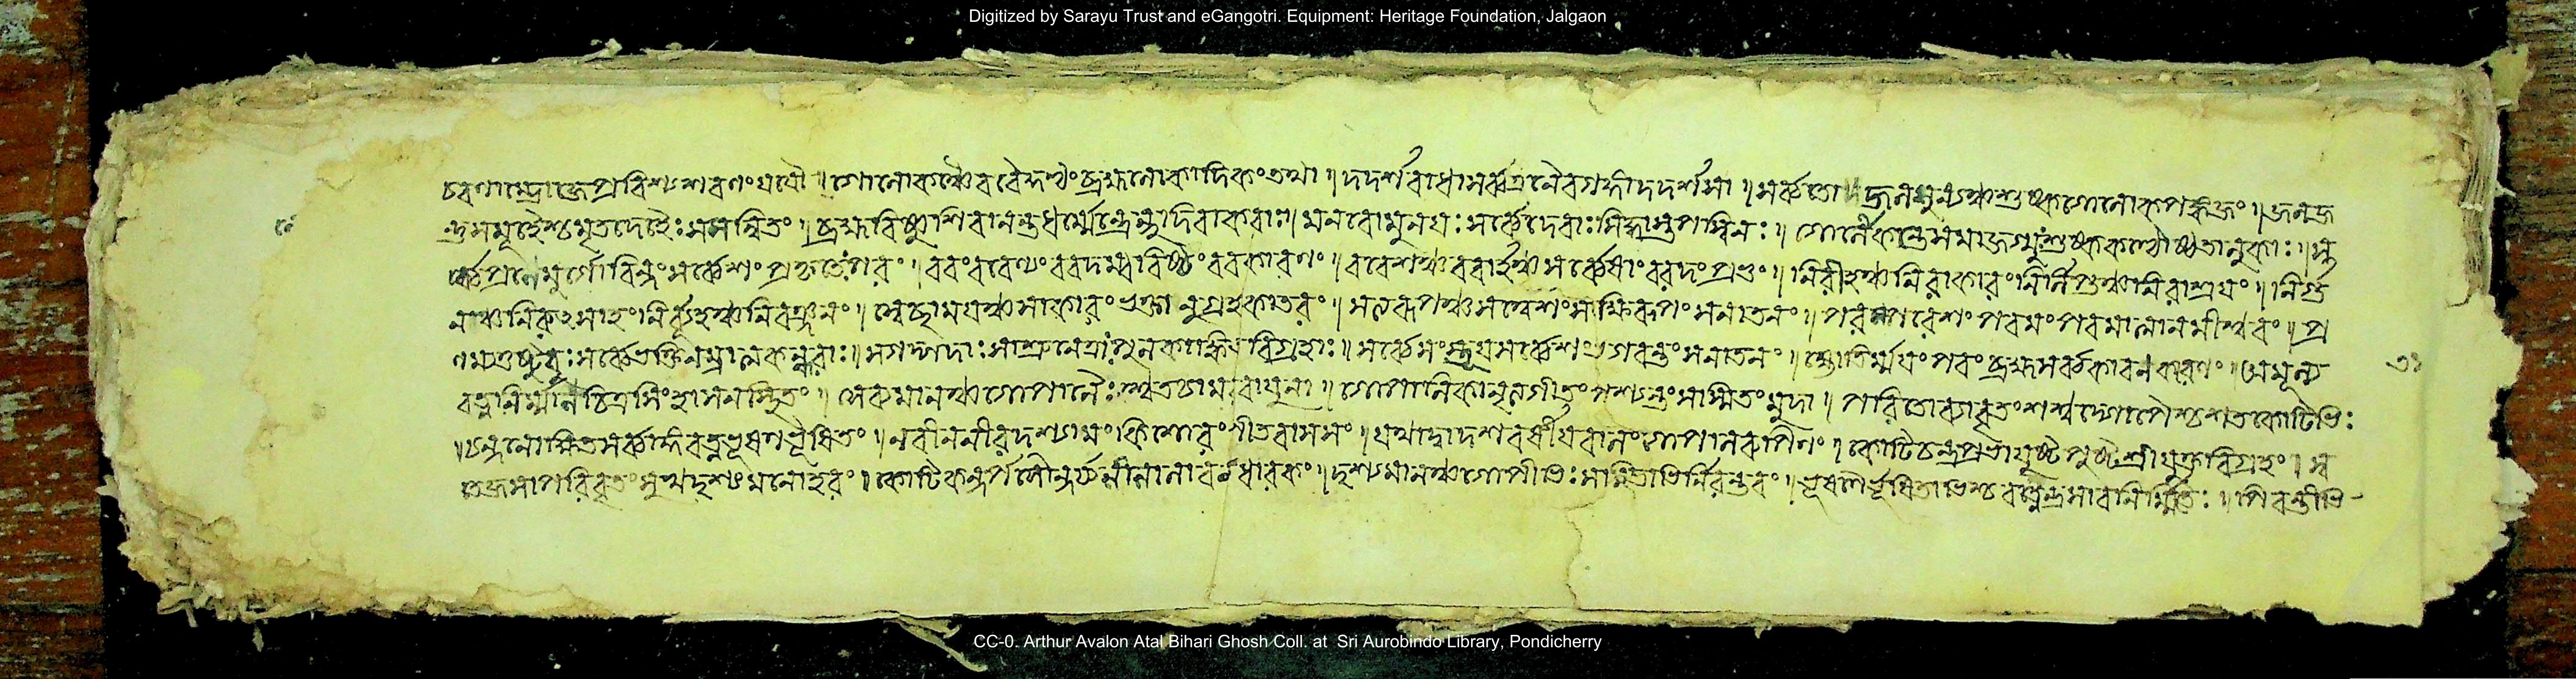 Digitized by Sarayu Trust and eGangotri. Equipment: Heritage Foundation, Jalgaon
প্রবিশ্য শবণং যযৌ ॥ গোলোকঞ্চৈব বৈকুণ্ঠং ব্রহ্মলোকাদিকং তথা ॥ দদর্শ রাধা সর্ব্বত্র নৈব গঙ্গাং দদর্শ সা ॥ সর্ব্বতো জলশূন্যঞ্চ শুষ্কগোলোকপঙ্কজং ॥ জলজ
ন্তুসমূহৈশ্চ মৃতদেহৈঃ সমন্বিতং ॥ ব্রহ্মবিষ্ণুশিবানন্তধর্ম্মেন্দ্রেন্দুদিবাকরাঃ ॥ মনবো মুনয়ঃ সর্ব্বে দেবাঃ সিদ্ধাস্তপস্বিনঃ ॥ গোলোকন্তে সমাজগ্মুঃ শুষ্ককণ্ঠোষ্ঠতালুকাঃ ॥ স
র্ব্বে প্রণেমুর্গোবিন্দং সর্ব্বেশং প্রকৃতেঃ পরং ॥ বরং বরেণ্যং বরদম্বরিষ্ঠং বরকারণং ॥ বরেশঞ্চ বরার্হঞ্চ সর্ব্বেষাং বরদং প্রভুং ॥ নিরীহঞ্চ নিরাকারং নির্লিপ্তঞ্চ নিরাশ্রয়ং ॥ নির্গু
ণঞ্চ নিরুৎসাহং নির্ব্যূহঞ্চ নিরঞ্জনং ॥ স্বেচ্ছাময়ঞ্চ সাকারং ভক্তানুগ্রহকাতরং ॥ সত্যরূপঞ্চ সত্যেশং সাক্ষিরূপং সনাতনং ॥ পরং পরেশং পরমং পরমাত্মানমীশ্বরং ॥ প্র
ণম্য তুষ্টুবুঃ সর্ব্বে ভক্তিনম্রাত্মকন্ধরাঃ ॥ সগদ্গদাঃ সাশ্রুনেত্রাঃ পুলকাঙ্কিতবিগ্রহাঃ ॥ সর্ব্বে সংস্তূয় সর্ব্বেশং ভগবন্তং সনাতনং ॥ জ্যোতির্ম্ময়ং পরং ব্রহ্ম সর্ব্বকারণকারণং ॥ অমূল্য
রত্ননির্ম্মাণচিত্রসিংহাসনস্থিতং ॥ সেব্যমানঞ্চ গোপালৈঃ শ্বেতচামরবায়ুনা ॥ গোপালিকানৃত্যগীতং পশ্যন্তং সস্মিতং মুদা ॥ পরিতো ব্যাবৃতং শশ্বদ্গোপৈশ্চ শতকোটিভিঃ
॥ চন্দনোক্ষিতসর্ব্বাঙ্গং রত্নভূষণভূষিতং ॥ নবীননীরদশ্যামং কিশোরং পীতবাসসং ॥ যথা দ্বাদশবর্ষীয়বালং গোপালরূপিণং ॥ কোটিচন্দ্রপ্রভাযুষ্টপুষ্টশ্রীযুক্তবিগ্রহং ॥ স্ব
তেজসা পরিবৃতং সুখদৃশ্যং মনোহরং ॥ কোটিকন্দর্পসৌন্দর্য্য ধারকং ॥ দৃশ্যমানঞ্চ গোপীভিঃ সস্মিতাভির্নিরন্তরং ॥ ভূষণৈর্ভূষিতাভিশ্চ রত্নেন্দ্রসারনির্ম্মিতৈঃ ॥ পিবন্তীভি
CC-0. Arthur Avalon Atal Bihari Ghosh Coll. at Sri Aurobindo Library, Pondicherry